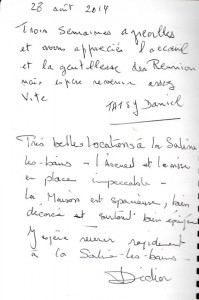 28 août 2014
Trois Semaines agréables
et avons appréciés l'accueil
et la gentillesse des Réunion
mais espère revenir assez
Vite
Daniel
Très belles locations à la Saline
les-bains - l'Accueil et la mise
en place impeccable -
La Maison est spacieuse, bien
décorée et surtout bien équipée
J'espère revenir rapidement
à la Saline-les-bains -